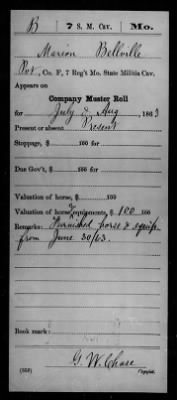 B 7 S. M. Cav. Mo.
Marion Bellville
Pvt, Co. F, 7 Reg't Mo. State Militia Cav.
Appears on
Company Muster Roll
for July & Aug, 1863
Present or absent Present
Stoppage, $ 100 for
Due Gov't, $ 100 for
Valuation of horse, $ 100
Valuation of horse equipments, $ 100 100
Remarks: Furnished horse & equip.
from June 30/63.
Book mark:
G. W. Chase
(858) Copyist.